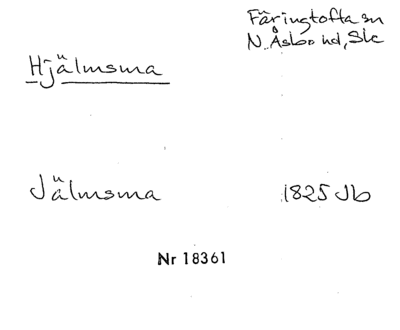 Färingtofta sn
N. Åsbo hd, Sk
Hjälmsma
Jälmsma 1825 Jb
Nr 18361